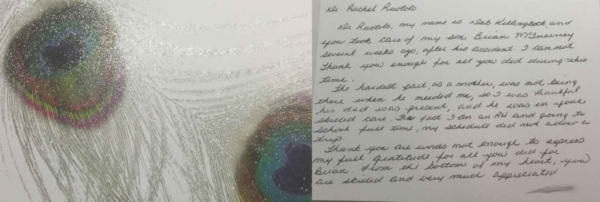 Dr. Rachel Ruotolo
Dr. Ruotolo, my name is Deb Killingbeck and
you took care of my son Brian McInerney
several weeks ago, after his accident. I cannot
thank you enough for all you did during this
time.
The hardest part, as a mother, was not being
there when he needed me, so I was thankful
his dad was present, and he was in your
skilled care. The fact I am an RN and going to
school full time, my schedule did not allow a
trip.
Thank you are words not enough to express
my full gratitude for all you did for
Brian. From the bottom of my heart, you
are skilled and very much appreciated